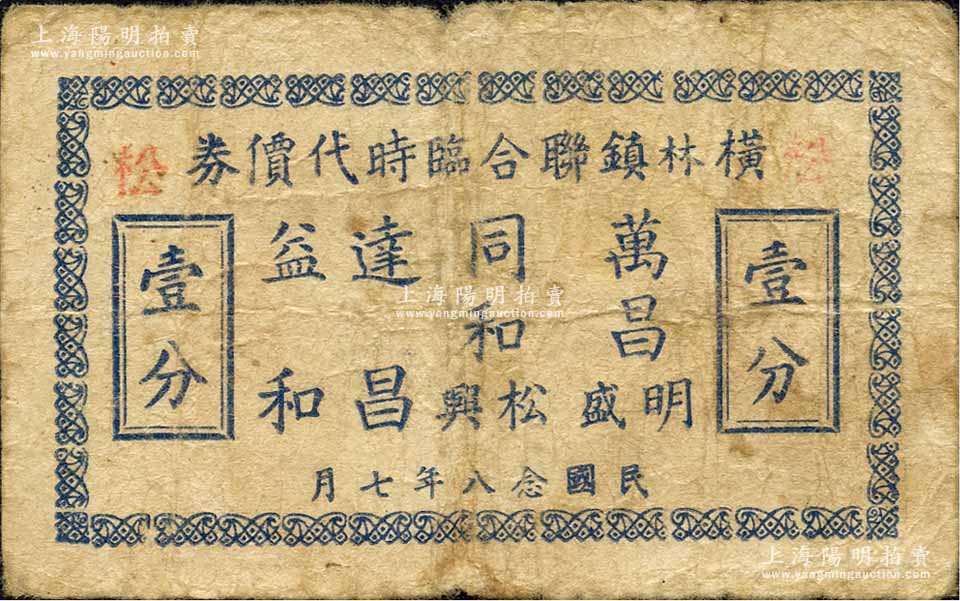 上海陽明拍賣
www.yangmingauction.com
橫林鎮聯合臨時代價券
松
松
壹分
萬昌明盛
同和松興
達昌
益和
壹分
上海陽明拍賣
www.yangmingauction.com
民國念八年七月
上海陽明拍賣
www.yangmingauction.com